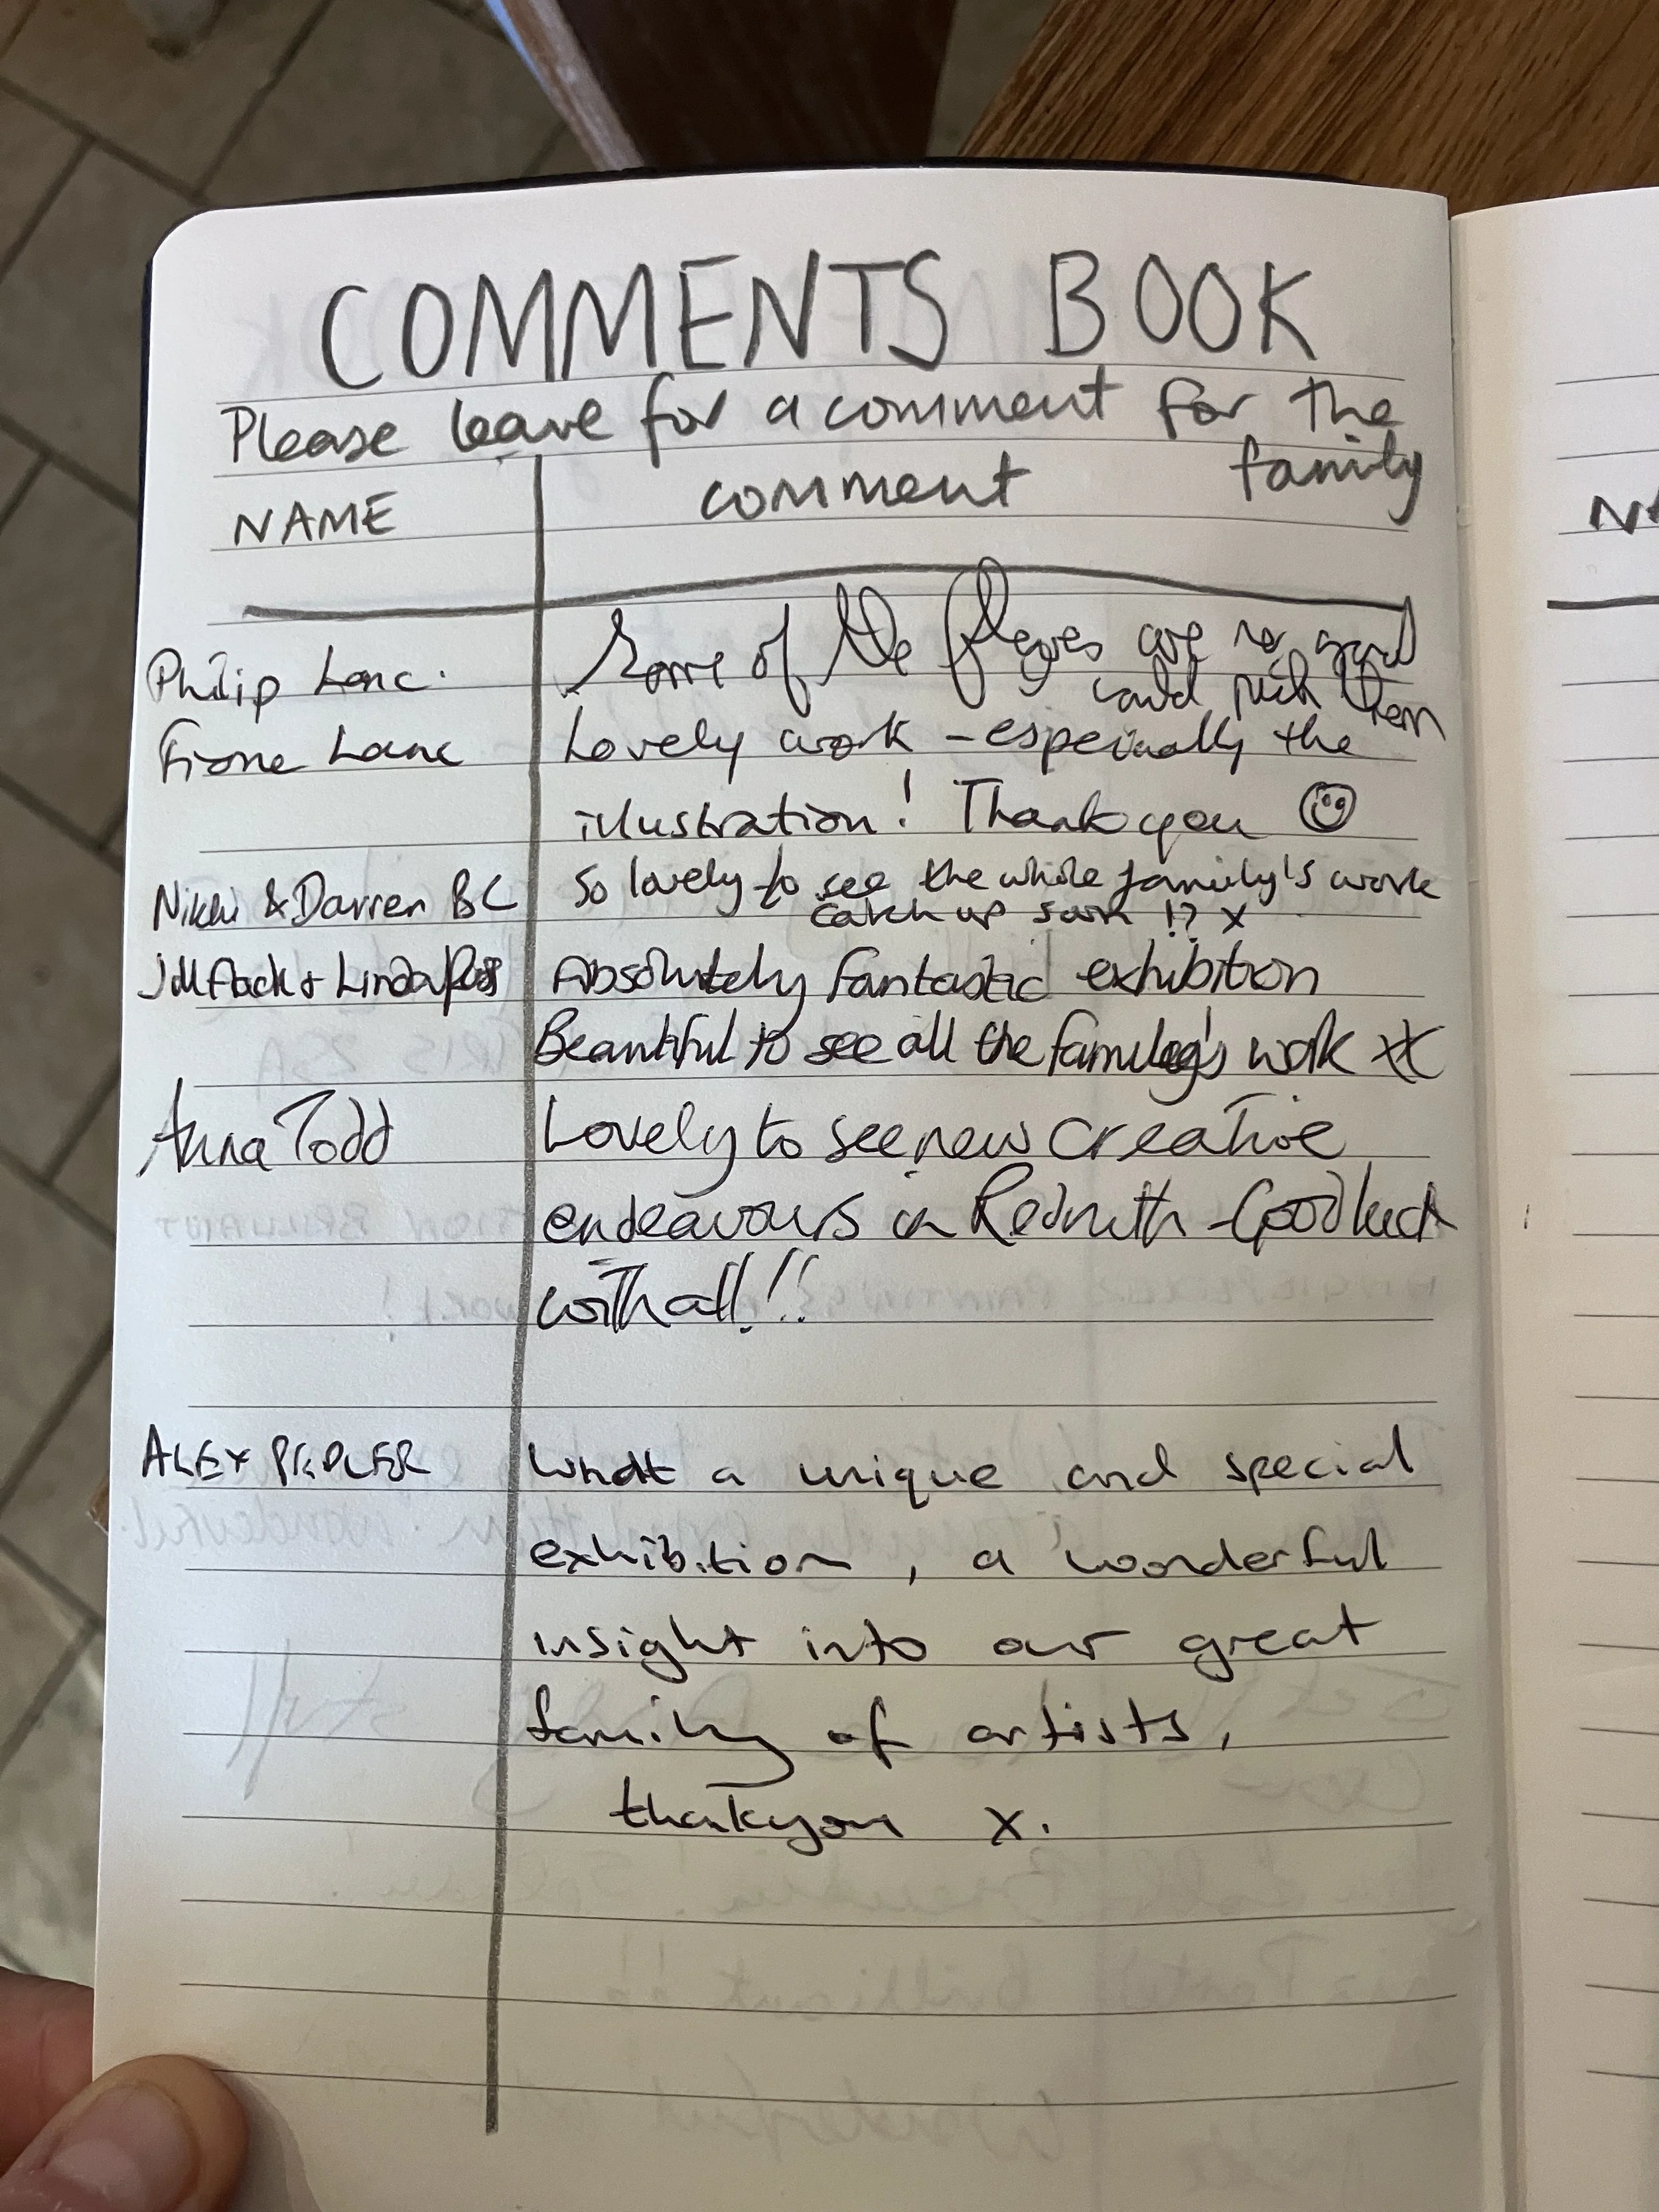 COMMENTS BOOK
Please leave for a comment for the
family
NAME comment
Philip Lane. Some of the are so good
could pick them
Fiona Lane Lovely work - especially the
illustration! Thank you ☺
Nikki & Darren BC So lovely to see the whole family's work
catch up soon !? x
Jill & Linda Absolutely fantastic exhibition
Beautiful to see all the family's work xx
Anna Todd Lovely to see new creative
endeavours in Redruth - Good luck
with all!!!
ALEX PEDLER What a unique and special
exhibition, a wonderful
insight into our great
family of artists,
thankyou x.